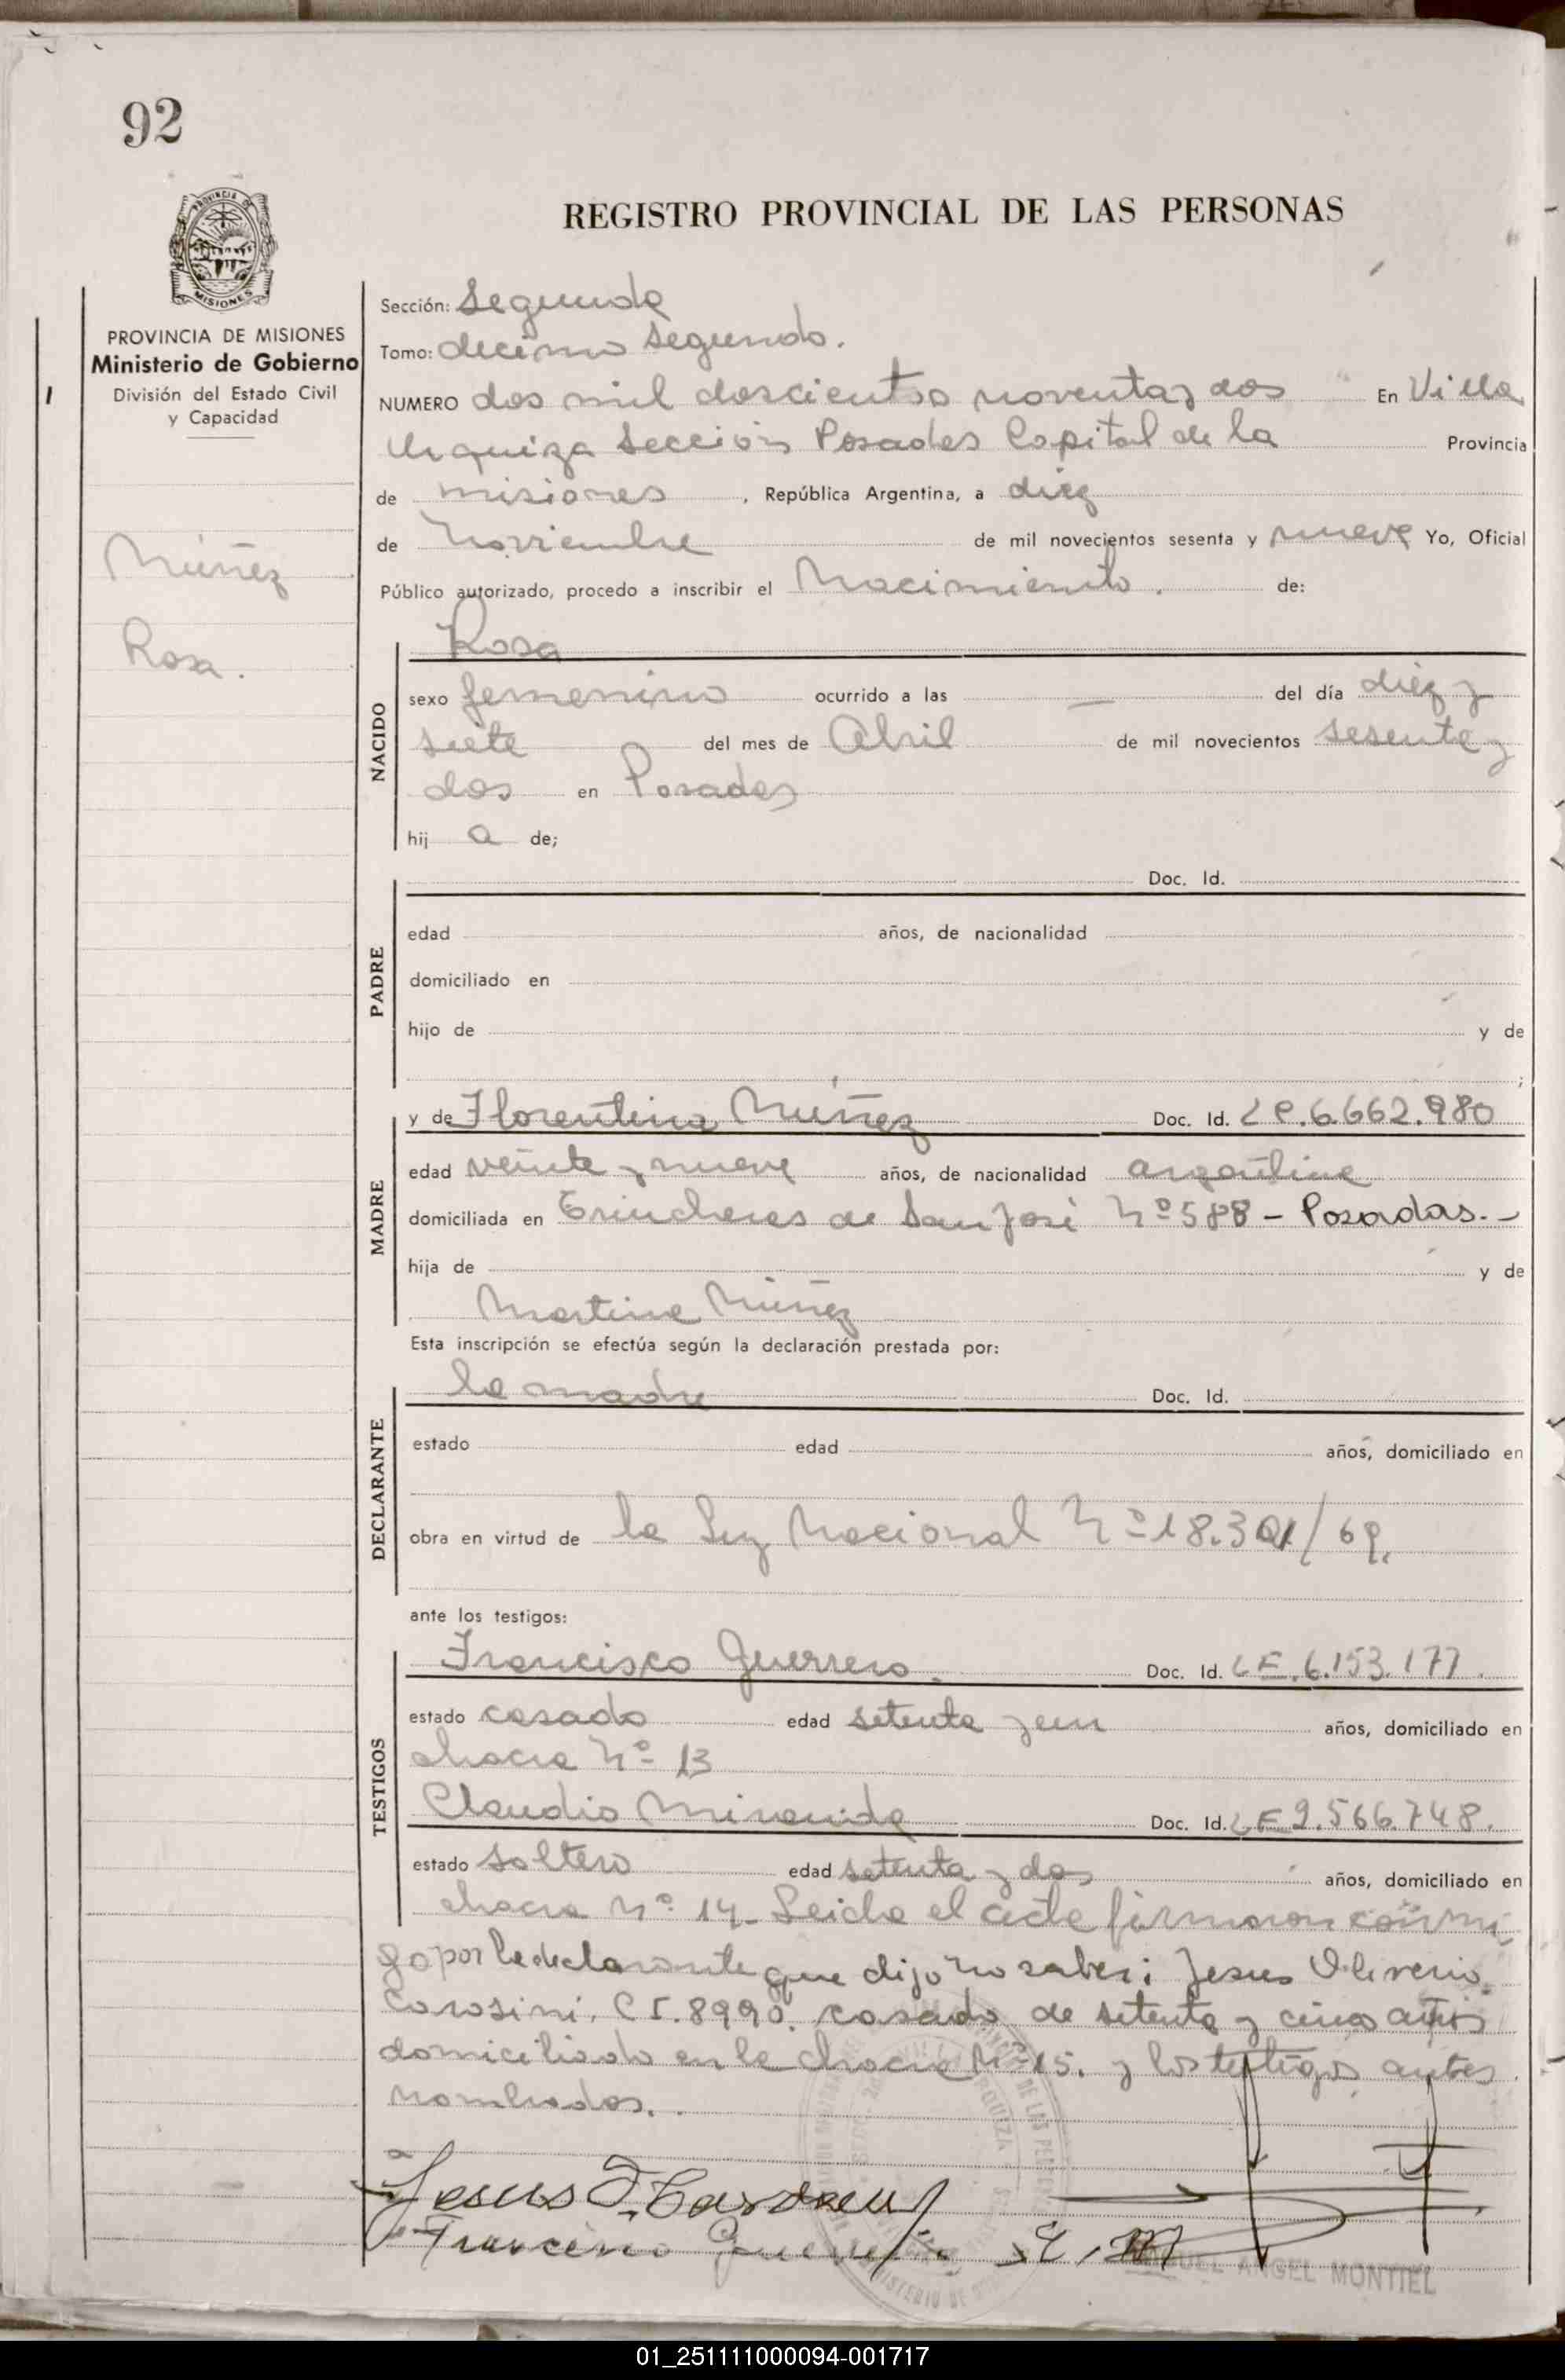 92
REGISTRO PROVINCIAL DE LAS PERSONAS
PROVINCIA DE MISIONES
Ministerio de Gobierno
División del Estado Civil
y Capacidad
Núñez
Rosa.
Sección: Segunda
Tomo: decimo segundo.
NUMERO dos mil doscientos noventa y dos En Villa
Urquiza Sección Posadas Capital de la Provincia
de misiones, República Argentina, a diez
de Noviembre de mil novecientos sesenta y nueve Yo, Oficial
Público autorizado, procedo a inscribir el Nacimiento. de:
NACIDO
Rosa
sexo femenino ocurrido a las — del día diez y
siete del mes de Abril de mil novecientos sesenta y
dos en Posadas
hij a de;
PADRE
Doc. Id.
edad años, de nacionalidad
domiciliado en
hijo de y de
;
MADRE
y de Florentina Núñez Doc. Id. LC.6.662.980
edad veinte y nueve años, de nacionalidad argentina
domiciliada en Trincheras de San José Nº 588 - Posadas.-
hija de y de
Martina Núñez
Esta inscripción se efectúa según la declaración prestada por:
DECLARANTE
la madre Doc. Id.
estado edad años, domiciliado en
obra en virtud de la Ley Nacional Nº 18.301/69.
ante los testigos:
TESTIGOS
Francisco Guerrero. Doc. Id. LE.6.153.177.
estado casado edad setenta y un años, domiciliado en
chacra Nº 13
Claudio Miranda Doc. Id. LE 9.566.748.
estado soltero edad setenta y dos años, domiciliado en
chacra Nº 14- Leida el acta firmaron conmi
go por la declarante que dijo no saber: Jesus Oliverio
C.I. 8990. casado de setenta y cinco años
domiciliado en la chacra Nº 15. y los testigos antes
nombrados.
Jesus
Francisco Guerrero
ANGEL MONTIEL
01_251111000094-001717